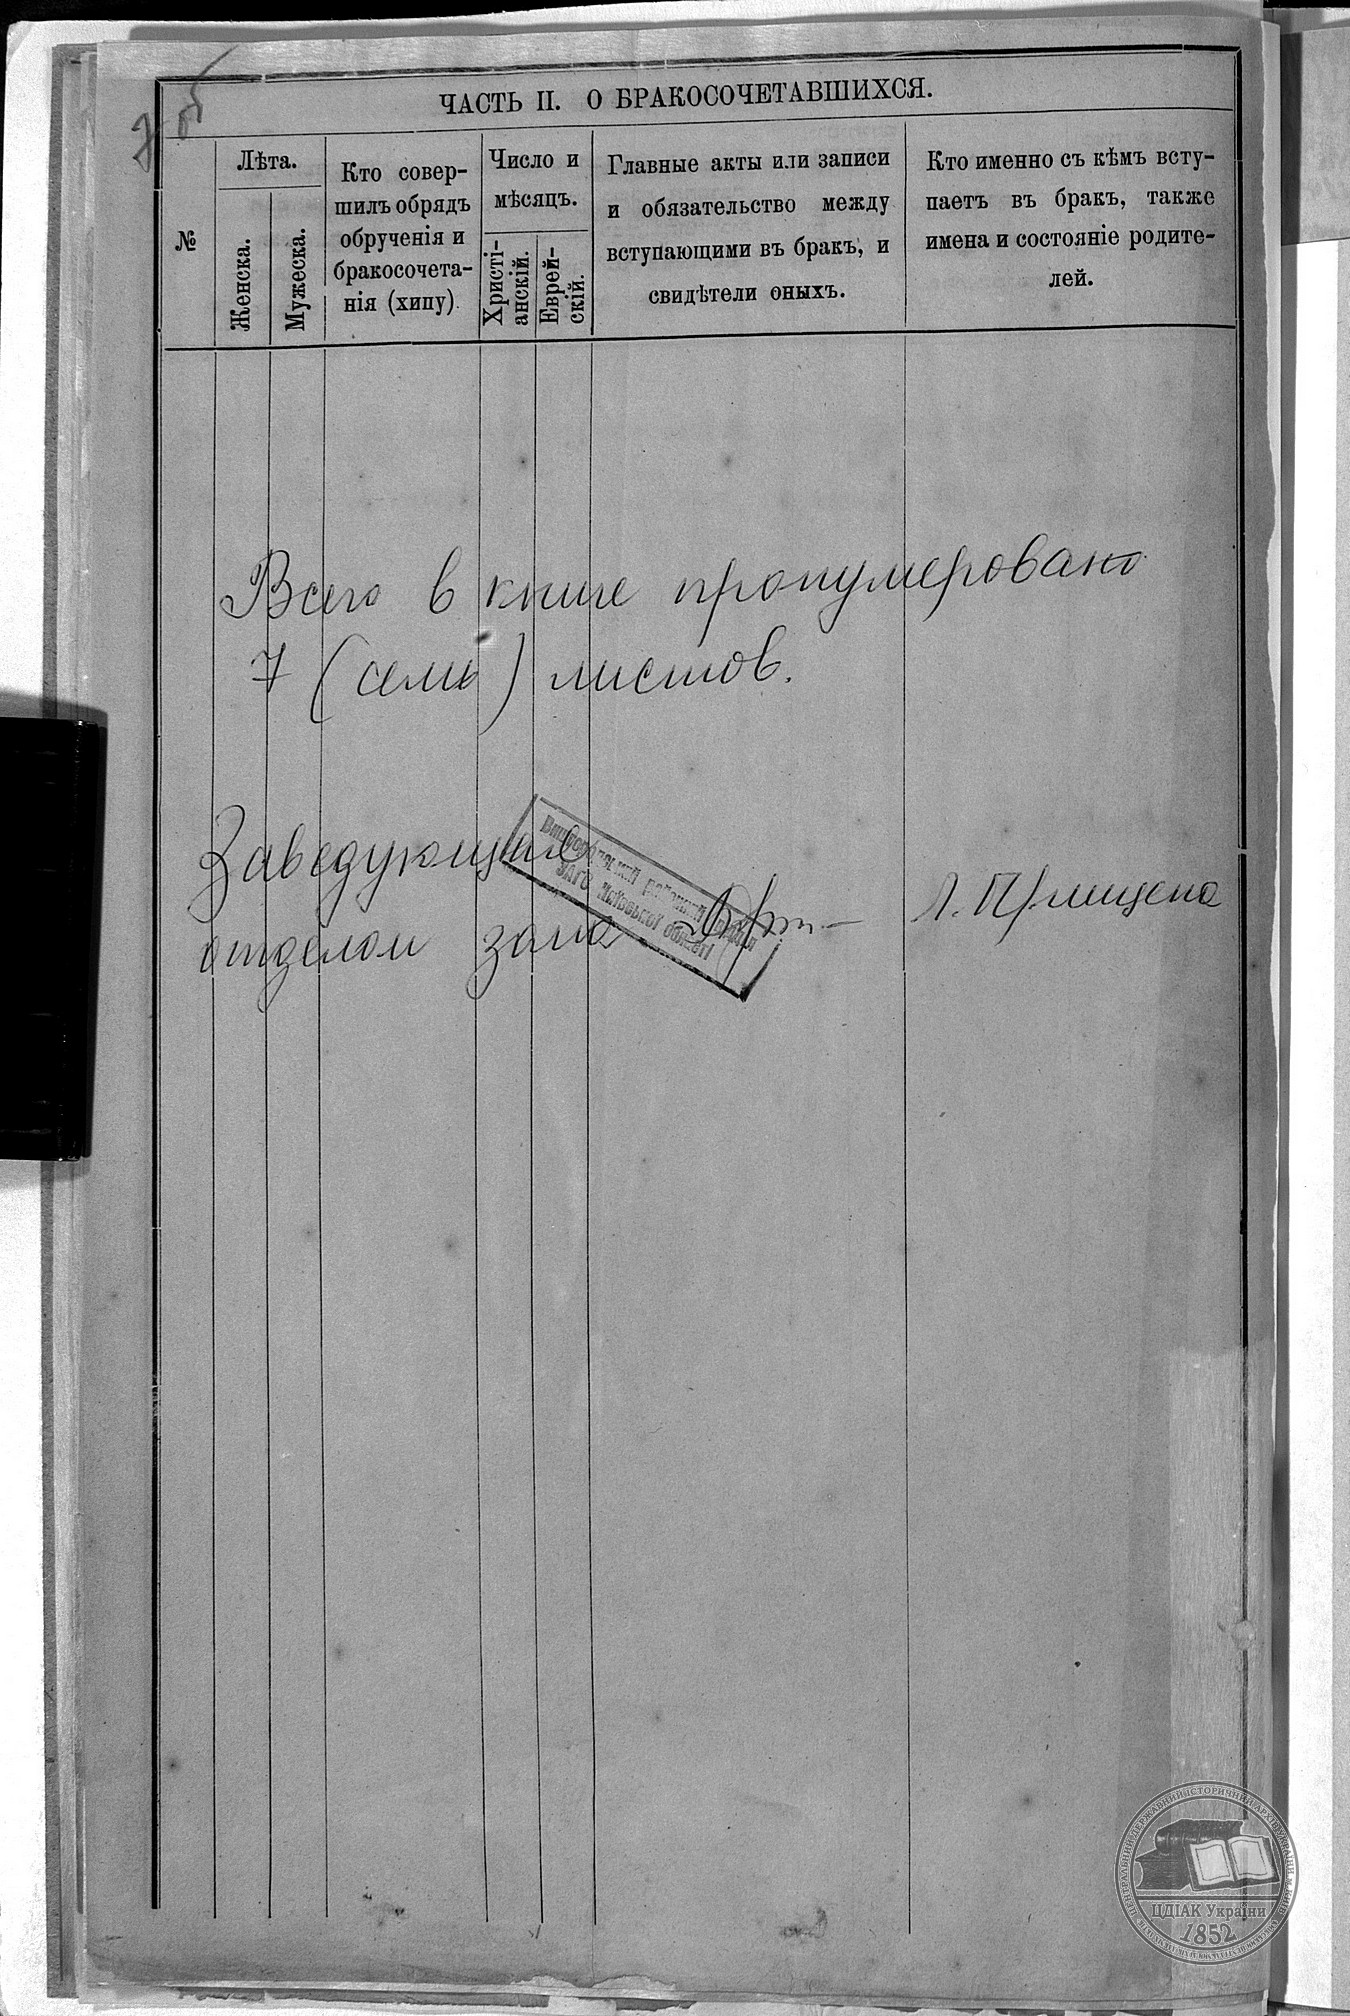 7 об
ЧАСТЬ II. О БРАКОСОЧЕТАВШИХСЯ.
№
Лѣта.
Женска.
Мужеска.
Кто совер-
шилъ обрядъ
обрученія и
бракосочета-
нія (хипу).
Число и
мѣсяцъ.
Христі-
анскій.
Еврей-
скій.
Главные акты или записи
и обязательство между
вступающими въ бракъ, и
свидѣтели оныхъ.
Кто именно съ кѣмъ всту-
паетъ въ бракъ, также
имена и состояніе родите-
лей.
Всего в книге пронумеровано
7 (семь) листов.
Заведующий
отделом загса
районний
ЗАГС Київської області
ЦДІАК України
1852